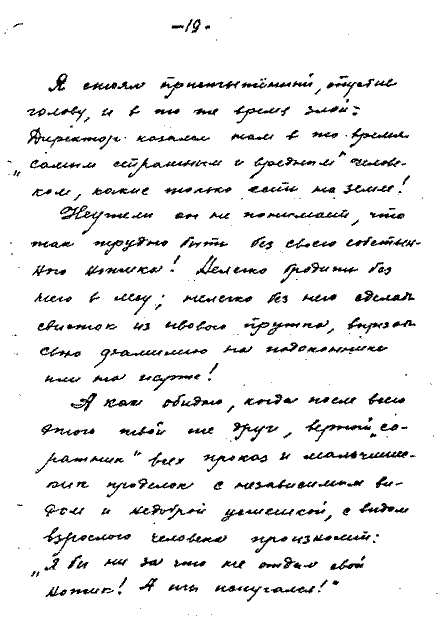 -19-
Я стоял пристыжённый, опустив
голову, и в то же время злой:
Директор казался нам в то время
„самым страшным и вредным" челове-
ком, какие только есть на земле!
Неужели он не понимает, что
так трудно быть без своего собствен-
ного ножика! Нелегко бродить без
него в лесу; нелегко без него сделать
свисток из ивового прутика, вырезать
свою фамилию на подоконнике
или на парте!
А как обидно, когда после всего
этого твой же друг, верный „со-
ратник" всех проказ и мальчише-
ских проделок с независимым ви-
дом и недоброй усмешкой, с видом
взрослого человека произносит:
„Я бы ни за что не отдал свой
ножик! А ты испугался!"